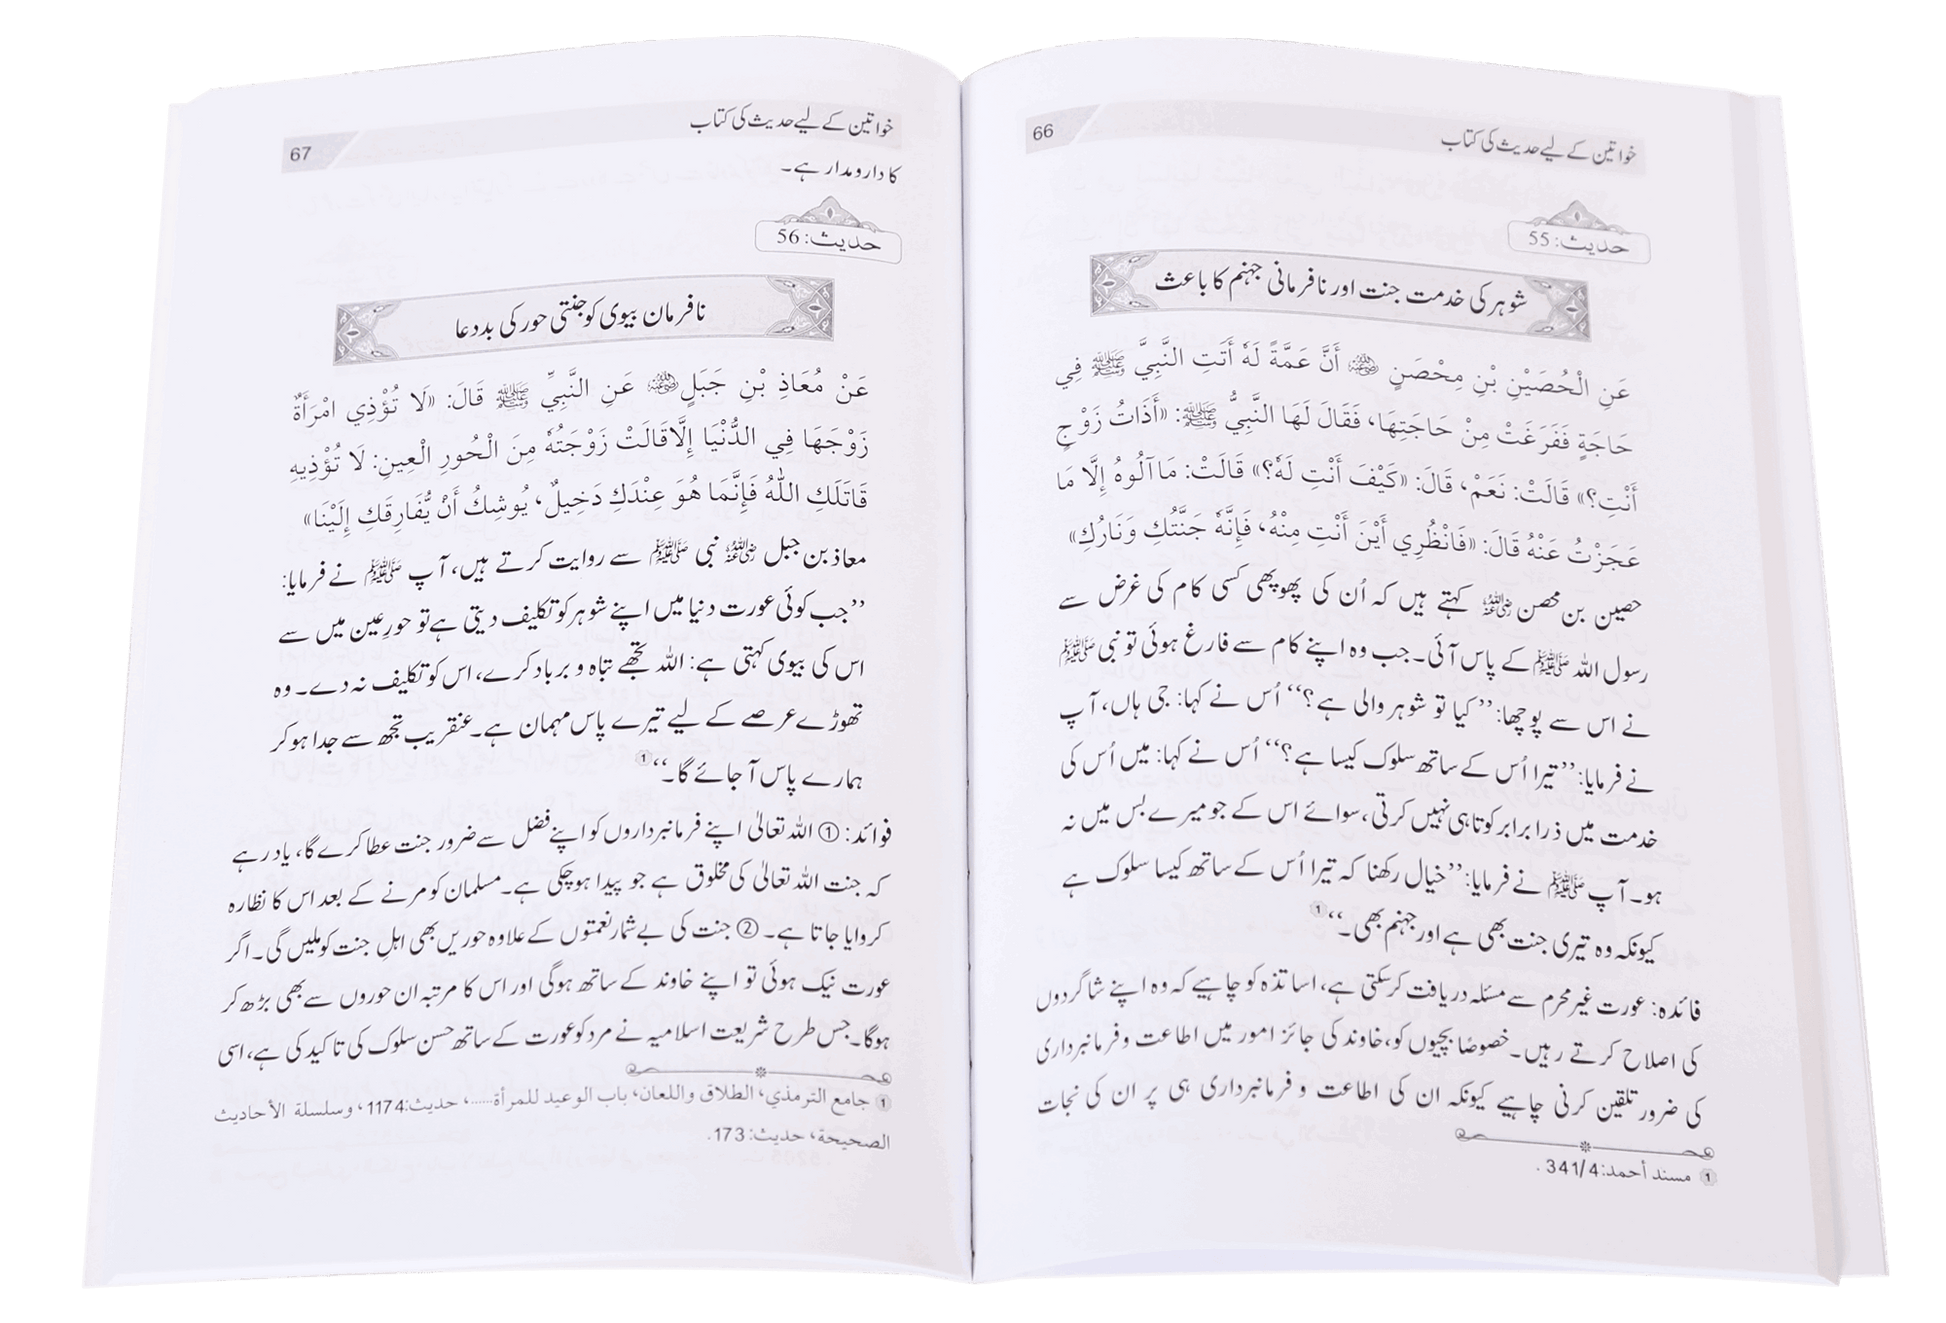 خواتین کے لیے حدیث کی کتاب
66
حدیث: 55
شوہر کی خدمت جنت اور نافرمانی جہنم کا باعث
عَنِ الْحُصَيْنِ بْنِ مِحْصَنٍ رضی اللہ عنہ أَنَّ عَمَّةً لَهٗ أَتَتِ النَّبِيَّ ﷺ فِي
حَاجَةٍ فَفَرَغَتْ مِنْ حَاجَتِهَا، فَقَالَ لَهَا النَّبِيُّ ﷺ: «أَذَاتُ زَوْجٍ
أَنْتِ؟» قَالَتْ: نَعَمْ، قَالَ: «كَيْفَ أَنْتِ لَهٗ؟» قَالَتْ: مَا آلُوهُ إِلَّا مَا
عَجَزْتُ عَنْهُ قَالَ: «فَانْظُرِي أَيْنَ أَنْتِ مِنْهُ، فَإِنَّهٗ جَنَّتُكِ وَنَارُكِ»
حصین بن محصن رضی اللہ عنہ کہتے ہیں کہ اُن کی پھوپھی کسی کام کی غرض سے
رسول اللہ ﷺ کے پاس آئی۔ جب وہ اپنے کام سے فارغ ہوئی تو نبی ﷺ
نے اس سے پوچھا: ’’کیا تو شوہر والی ہے؟‘‘ اُس نے کہا: جی ہاں، آپ
نے فرمایا: ’’تیرا اُس کے ساتھ سلوک کیسا ہے؟‘‘ اُس نے کہا: میں اُس کی
خدمت میں ذرا برابر کوتاہی نہیں کرتی، سوائے اس کے جو میرے بس میں نہ
ہو۔ آپ ﷺ نے فرمایا: ’’خیال رکھنا کہ تیرا اُس کے ساتھ کیسا سلوک ہے
کیونکہ وہ تیری جنت بھی ہے اور جہنم بھی۔‘‘ 1
فائدہ: عورت غیر محرم سے مسئلہ دریافت کر سکتی ہے، اساتذہ کو چاہیے کہ وہ اپنے شاگردوں
کی اصلاح کرتے رہیں۔ خصوصًا بچیوں کو، خاوند کی جائز امور میں اطاعت و فرمانبرداری
کی ضرور تلقین کرنی چاہیے کیونکہ ان کی اطاعت و فرمانبرداری ہی پر ان کی نجات
1 مسند أحمد: 341/4.
خواتین کے لیے حدیث کی کتاب
67
کا دارومدار ہے۔
حدیث: 56
نافرمان بیوی کو جنتی حور کی بددعا
عَنْ مُعَاذِ بْنِ جَبَلٍ رضی اللہ عنہ عَنِ النَّبِيِّ ﷺ قَالَ: «لَا تُؤْذِي امْرَأَةٌ
زَوْجَهَا فِي الدُّنْيَا إِلَّا قَالَتْ زَوْجَتُهٗ مِنَ الْحُورِ الْعِينِ: لَا تُؤْذِيهِ
قَاتَلَكِ اللّٰهُ فَإِنَّمَا هُوَ عِنْدَكِ دَخِيلٌ، يُوشِكُ أَنْ يُّفَارِقَكِ إِلَيْنَا»
معاذ بن جبل رضی اللہ عنہ نبی ﷺ سے روایت کرتے ہیں، آپ ﷺ نے فرمایا:
’’جب کوئی عورت دنیا میں اپنے شوہر کو تکلیف دیتی ہے تو حورِعین میں سے
اس کی بیوی کہتی ہے: اللہ تجھے تباہ و برباد کرے، اس کو تکلیف نہ دے۔ وہ
تھوڑے عرصے کے لیے تیرے پاس مہمان ہے۔ عنقریب تجھ سے جدا ہو کر
ہمارے پاس آ جائے گا۔‘‘ 1
فوائد: ① اللہ تعالیٰ اپنے فرمانبرداروں کو اپنے فضل سے ضرور جنت عطا کرے گا، یاد رہے
کہ جنت اللہ تعالیٰ کی مخلوق ہے جو پیدا ہو چکی ہے۔ مسلمان کو مرنے کے بعد اس کا نظارہ
کروایا جاتا ہے۔ ② جنت کی بے شمار نعمتوں کے علاوہ حوریں بھی اہلِ جنت کو ملیں گی۔ اگر
عورت نیک ہوئی تو اپنے خاوند کے ساتھ ہوگی اور اس کا مرتبہ ان حوروں سے بھی بڑھ کر
ہوگا۔ جس طرح شریعت اسلامیہ نے مرد کو عورت کے ساتھ حسن سلوک کی تاکید کی ہے، اسی
1 جامع الترمذي، الطلاق واللعان، باب الوعيد للمرأة......، حديث: 1174، وسلسلة الأحاديث
الصحيحة، حديث: 173.